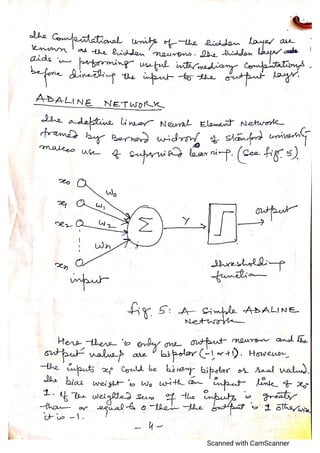 The Computational units of the hidden layer are
known as the hidden neurons. The hidden layer
aids in performing useful intermediary computations
before directing the input to the output layer.
ADALINE NETWORK
The adaptive linear Neural Element Network
framed by Bernard widrow of Stanford university
makes use of supervised learning. (See fig 5).
x0
w0
x1
w1
x2
w2
Σ
y
output
wn
xn
input
thresholding
function
fig. 5: A Simple ADALINE
Network
Here there is only one output neuron and the
output values are bipolar (-1 or +1). However,
the inputs xi could be binary bipolar or real valued.
The bias weight is w0 with an input link of x0
1. If the weighted sum of the inputs is greater
than or equal to 0 then the output is 1 otherwise
it is -1.
- 4 -
Scanned with CamScanner